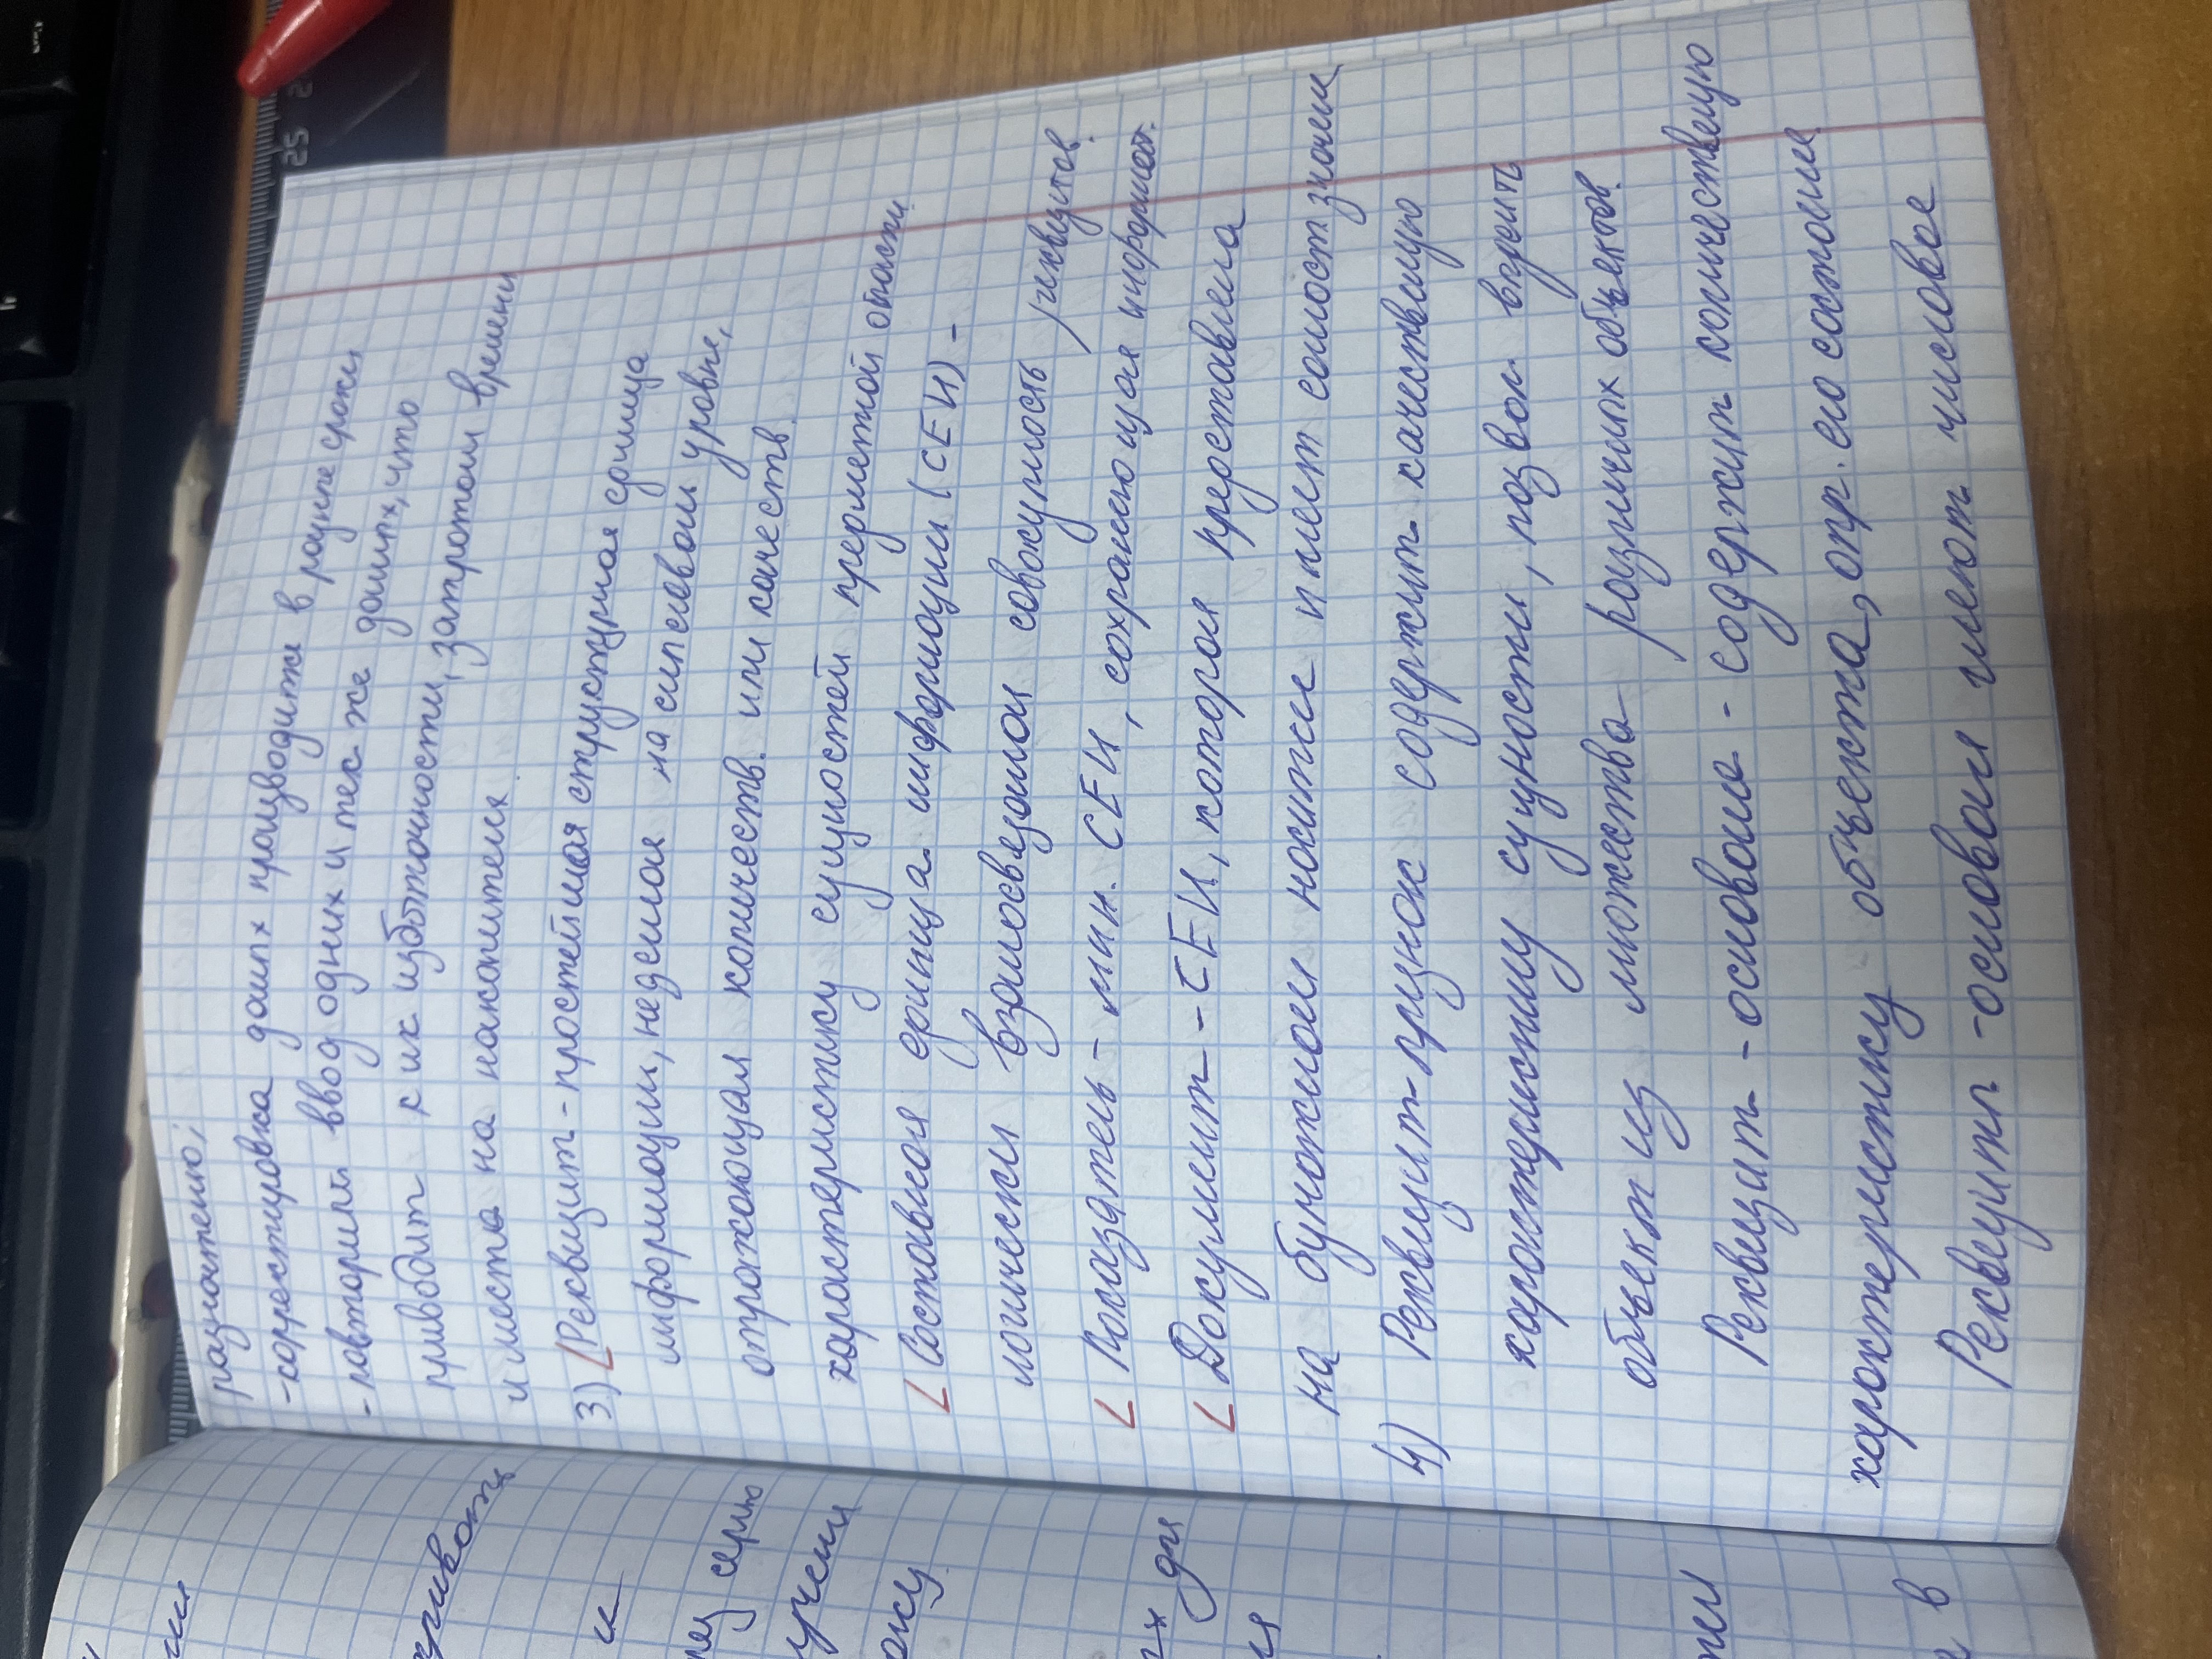 разночтению;
-корректировка даных производите в разные сроки
-повторный ввод одних и тех же даных, что
приводит к их избыточности, затратам времени
и места на накопителях.
3) Реквизит-простейшая структурная единица
информации, неделимая на смысловом уровне,
отражающая количеств. или качеств.
характеристику сущностей предметной области.
Составная единица информации (СЕИ) -
логически взаимосвязаная совокупность реквизитов.
Показатель - мин. СЕИ, сохраняющая информат.
Документ - СЕИ, которая представлена
на бумажном носителе и имеет самост значени
4) Реквизит-признак содержит качественую
характеристику сущности, позвол. выделить
объект из множества различных объектов.
Реквизит - основание - содержит количественую
характеристику объекта, опр. его состояние
Реквизит -основания имеют числовое
азчивать
и
из серию
дл
и
в